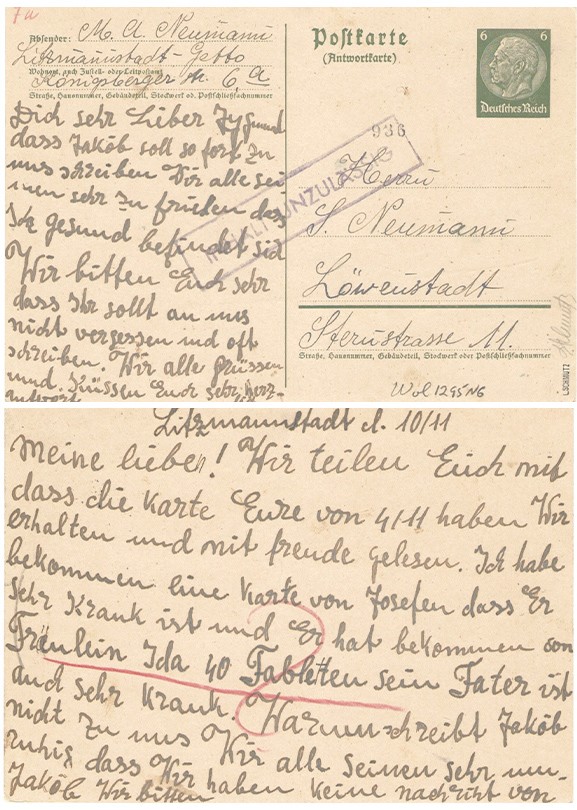 7a
Absender: M. A. Neumann
Litzmannstadt-Getto
Wohnort, auch Zustell- oder Leitpostamt
Königsberger 6, A
Straße, Hausnummer, Gebäudeteil, Stockwerk od. Postschließfachnummer
Dich sehr Lieber Zygmund
dass Jakób soll so fort zu
uns schreiben Wir alle sei
nen sehr zu frieden das
Ihr gesund befindet sich
Wir bitten Euch sehr
dass Ihr sollt an uns
nicht vergessen und oft
schreiben. Wir alle grüssen
und. Küssen Euch sehr herz-
Postkarte
(Antwortkarte)
6 6
Deutsches Reich
936
INHALT UNZULÄSSIG
Herrn
S. Neumann
Löwenstadt
Sternstrasse 11.
Straße, Hausnummer, Gebäudeteil, Stockwerk oder Postschließfachnummer
Wol 1295 NG
L.SCHMUTZ
Litzmannstadt d. 10/11
Meine lieben! Wir teilen Euch mit
dass die Karte Eure von 4/11 haben Wir
erhalten und mit freude gelesen. Ich habe
bekommen eine Karte von Josefen dass Er
sehr Krank ist und Er hat bekommen von
Fräulein Ida 40 Tabletten sein Fater ist
auch sehr Krank. Warum schreibt Jakób
nicht zu uns Wir alle seinen sehr un-
ruhig dass Wir haben keine nachricht von
Jakób Wir bitten